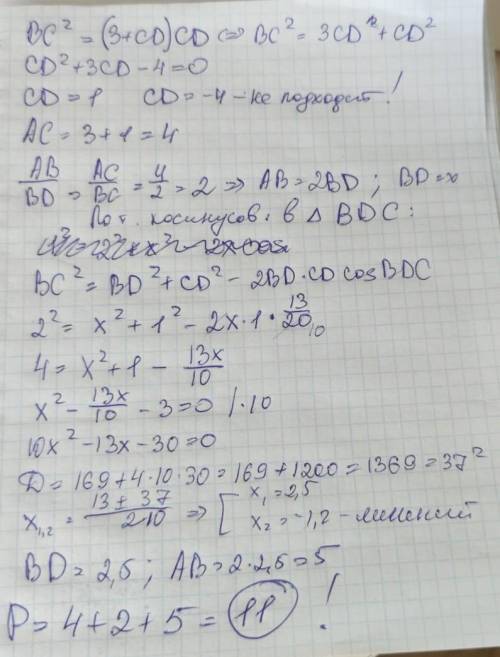 BC² = (3+CD)CD ⇔ BC² = 3CD + CD²
CD² + 3CD - 4 = 0
CD = 1 CD = -4 - не подходит!
AC = 3 + 1 = 4
AB/BD = AC/BC = 4/2 = 2 ⇒ AB = 2BD; BD = x
По т. косинусов: в Δ BDC:
BC² = BD² + CD² - 2BD·CD cosBDC
2² = x² + 1² - 2x·1·13/20 10
4 = x² + 1 - 13x/10
x² - 13x/10 - 3 = 0 /·10
10x² - 13x - 30 = 0
D = 169 + 4·10·30 = 169 + 1200 = 1369 = 37²
x₁,₂ = 13 ± 37/2·10 ⇒ [ x₁ = 2,5
x₂ = -1,2 - лишний
BD = 2,5; AB = 2·2,5 = 5
P = 4 + 2 + 5 = 11 !